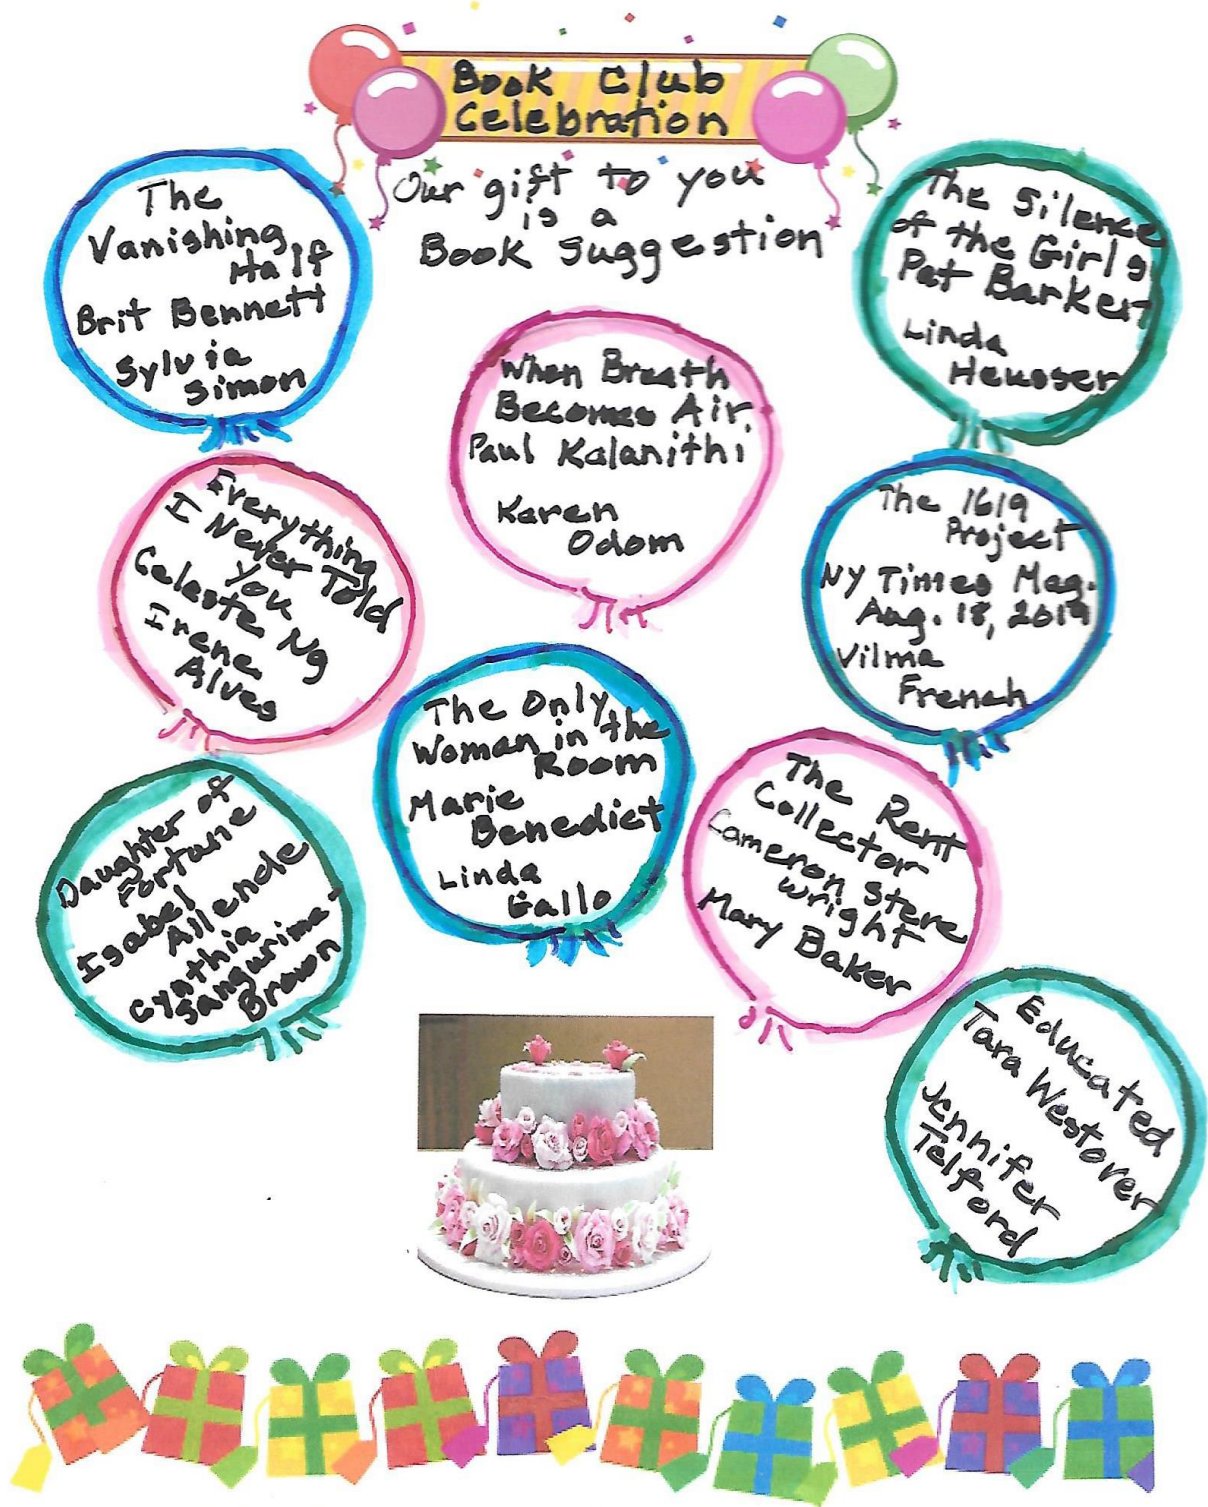 Book Club
Celebration
Our gift to you
is a
Book Suggestion
The
Vanishing
Half
Brit Bennett
Sylvia
Simon
The Silence
of the Girls
Pat Barker
Linda
Heusser
When Breath
Becomes Air
Paul Kalanithi
Karen
Odom
Everything
I Never Told
You
Celeste Ng
Irene
Alves
The 1619
Project
NY Times Mag.
Aug. 18, 2019
Vilma
French
The Only
Woman in the
Room
Marie
Benedict
Linda
Gallo
The Rent
Collector
Cameron Steve
Wright
Mary Baker
Daughter of
Fortune
Isabel
Allende
Cynthia
Sangurima-
Brown
Educated
Tara Westover
Jennifer
Telford